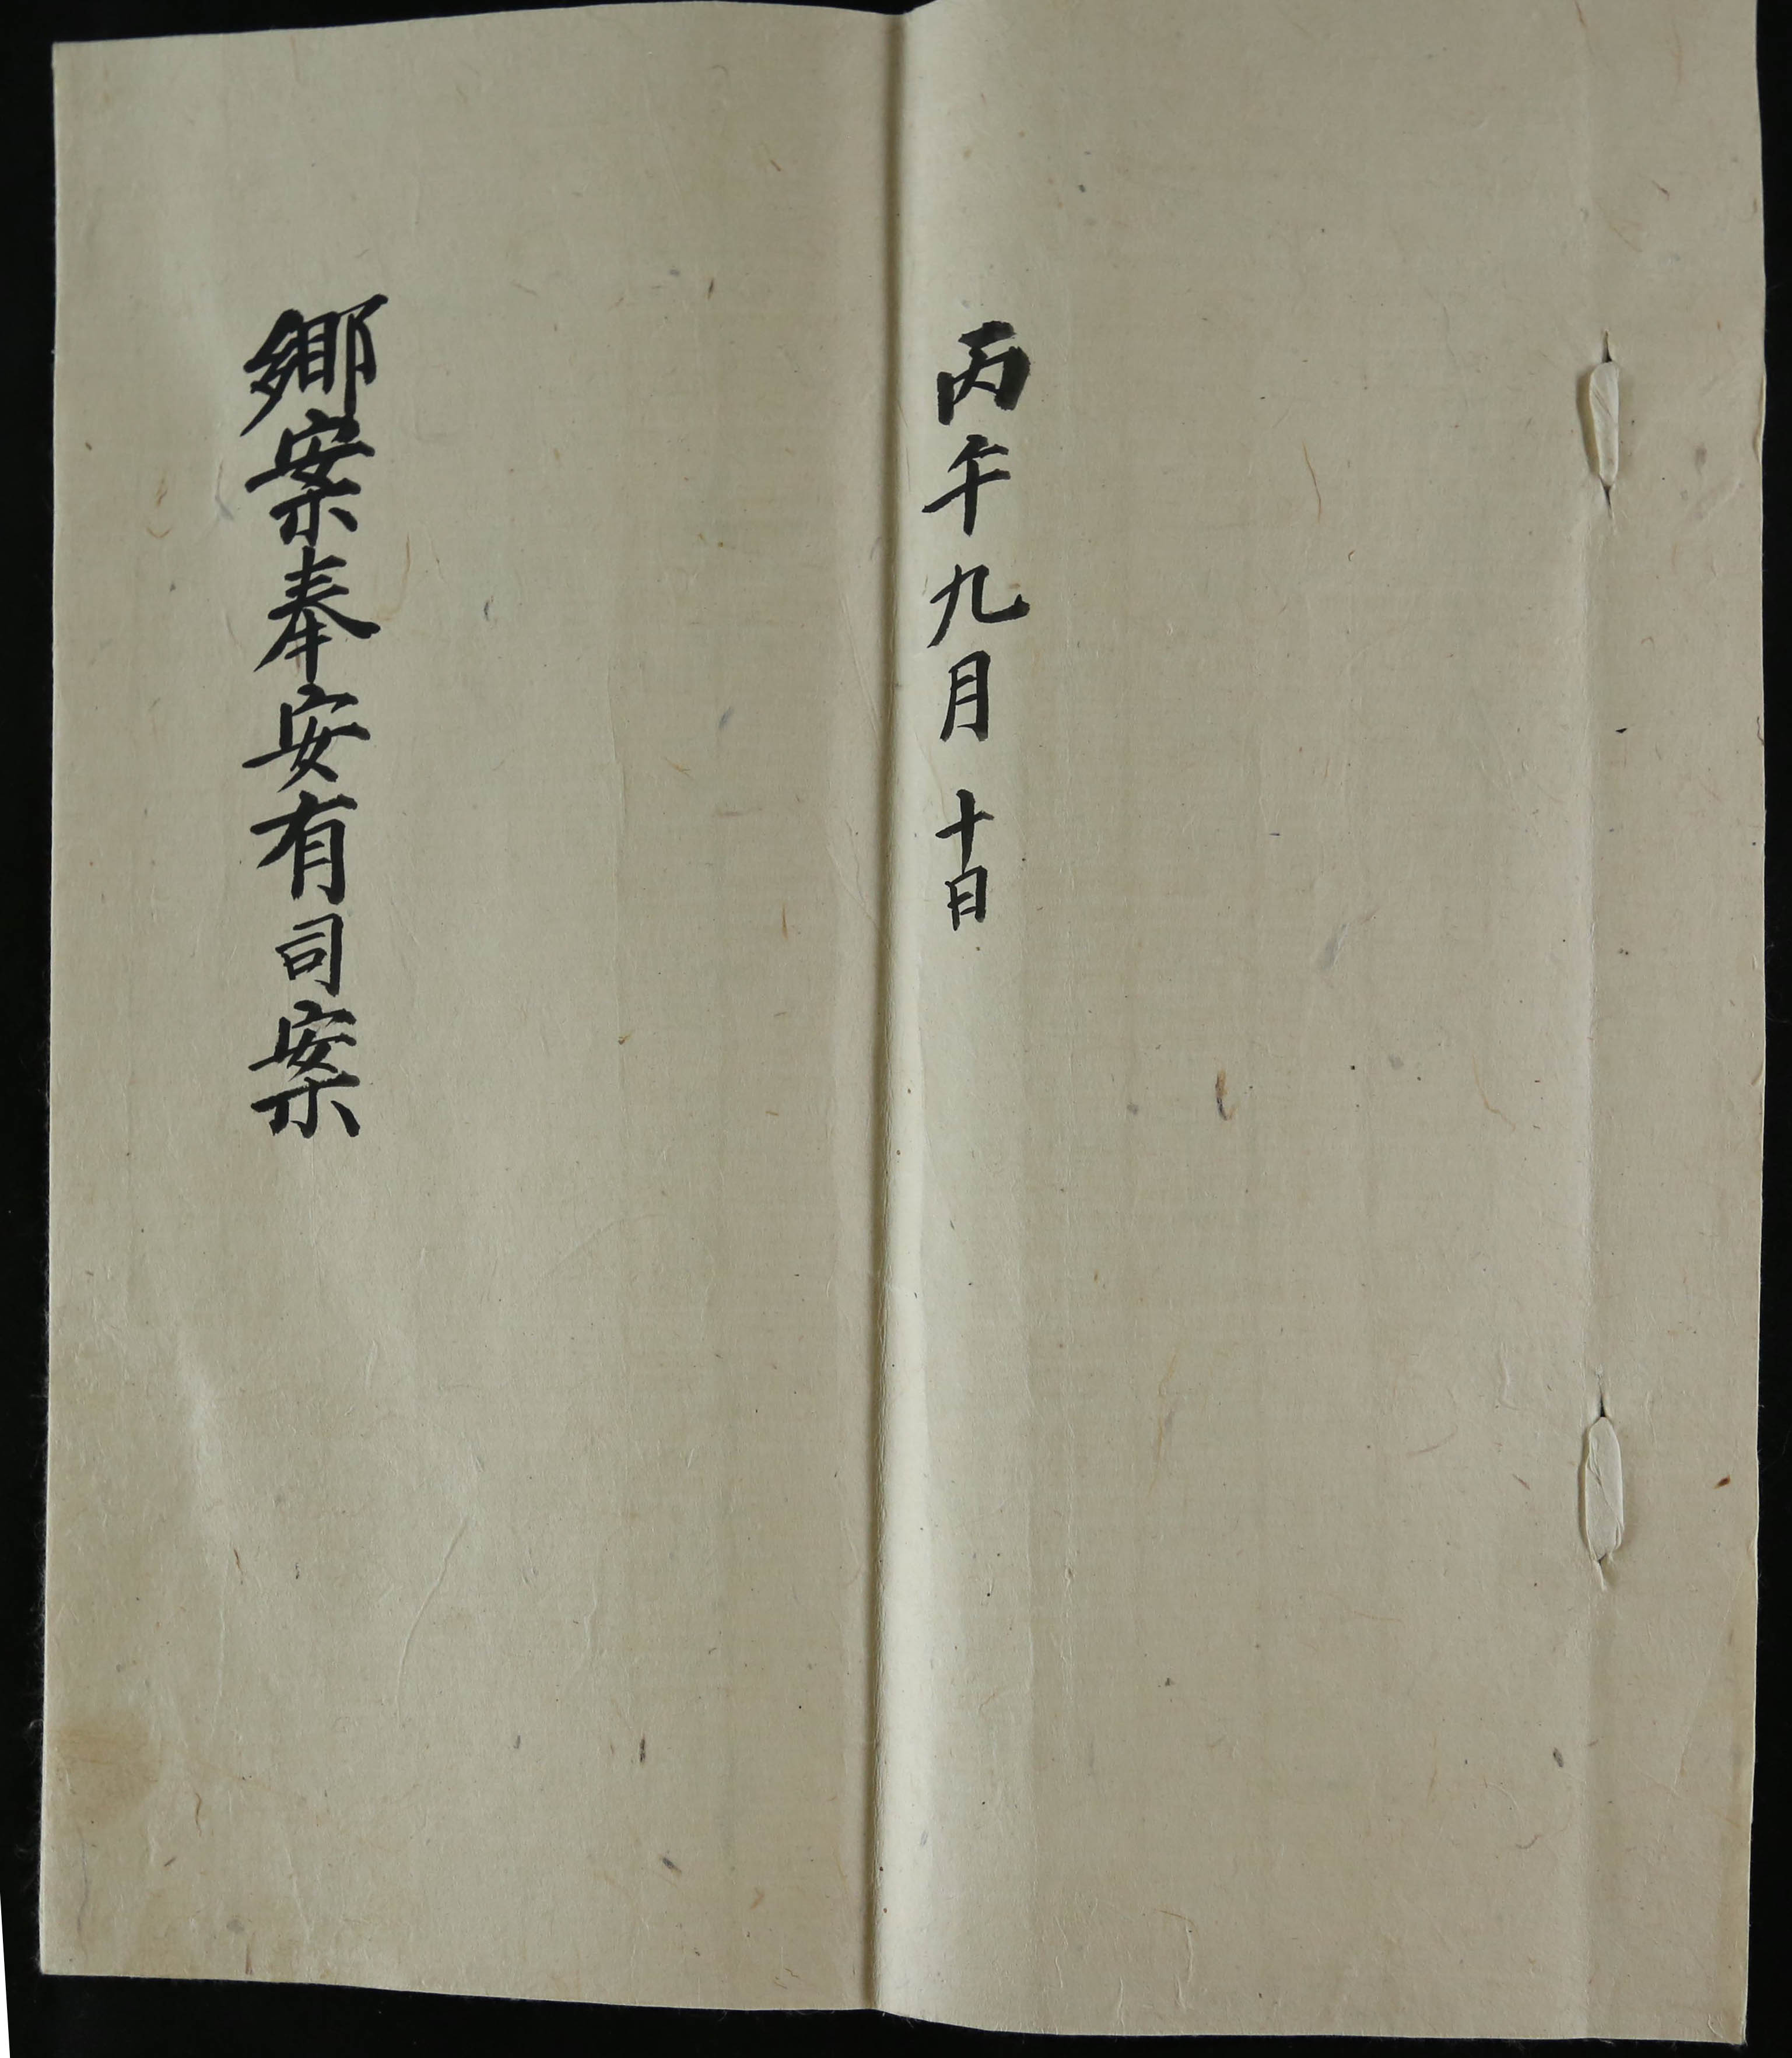 丙午九月十日
鄕案奉安有司案